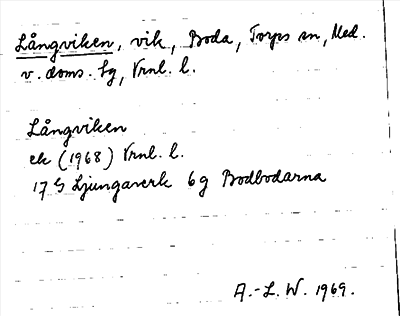 Långviken, vik, Boda, Torps sn, Med.
v. doms. sg, Vrnl. l.
Långviken
ek (1968) Vrnl. l.
17 G Ljungaverk 6 g Bodbodarna
A.-L. W. 1969.